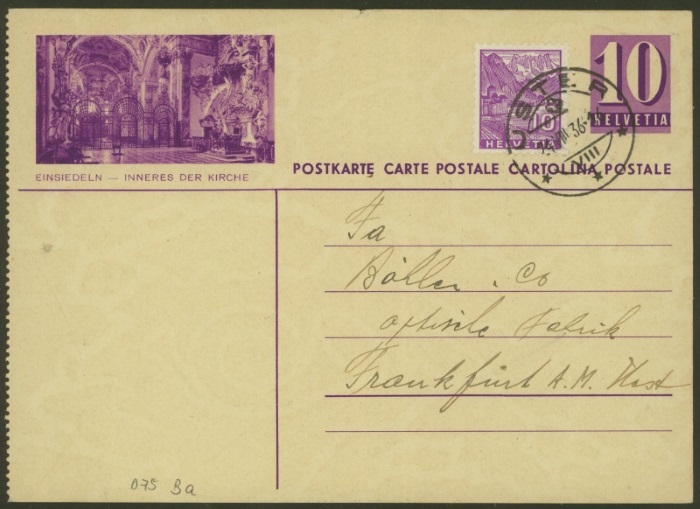 10
HELVETIA
10
HELVETIA
USTER
VIII 36
POSTKARTE CARTE POSTALE CARTOLINA POSTALE
EINSIEDELN — INNERES DER KIRCHE
Fa
& Co
optische Fabrik
Frankfurt A. M.
075 Ba